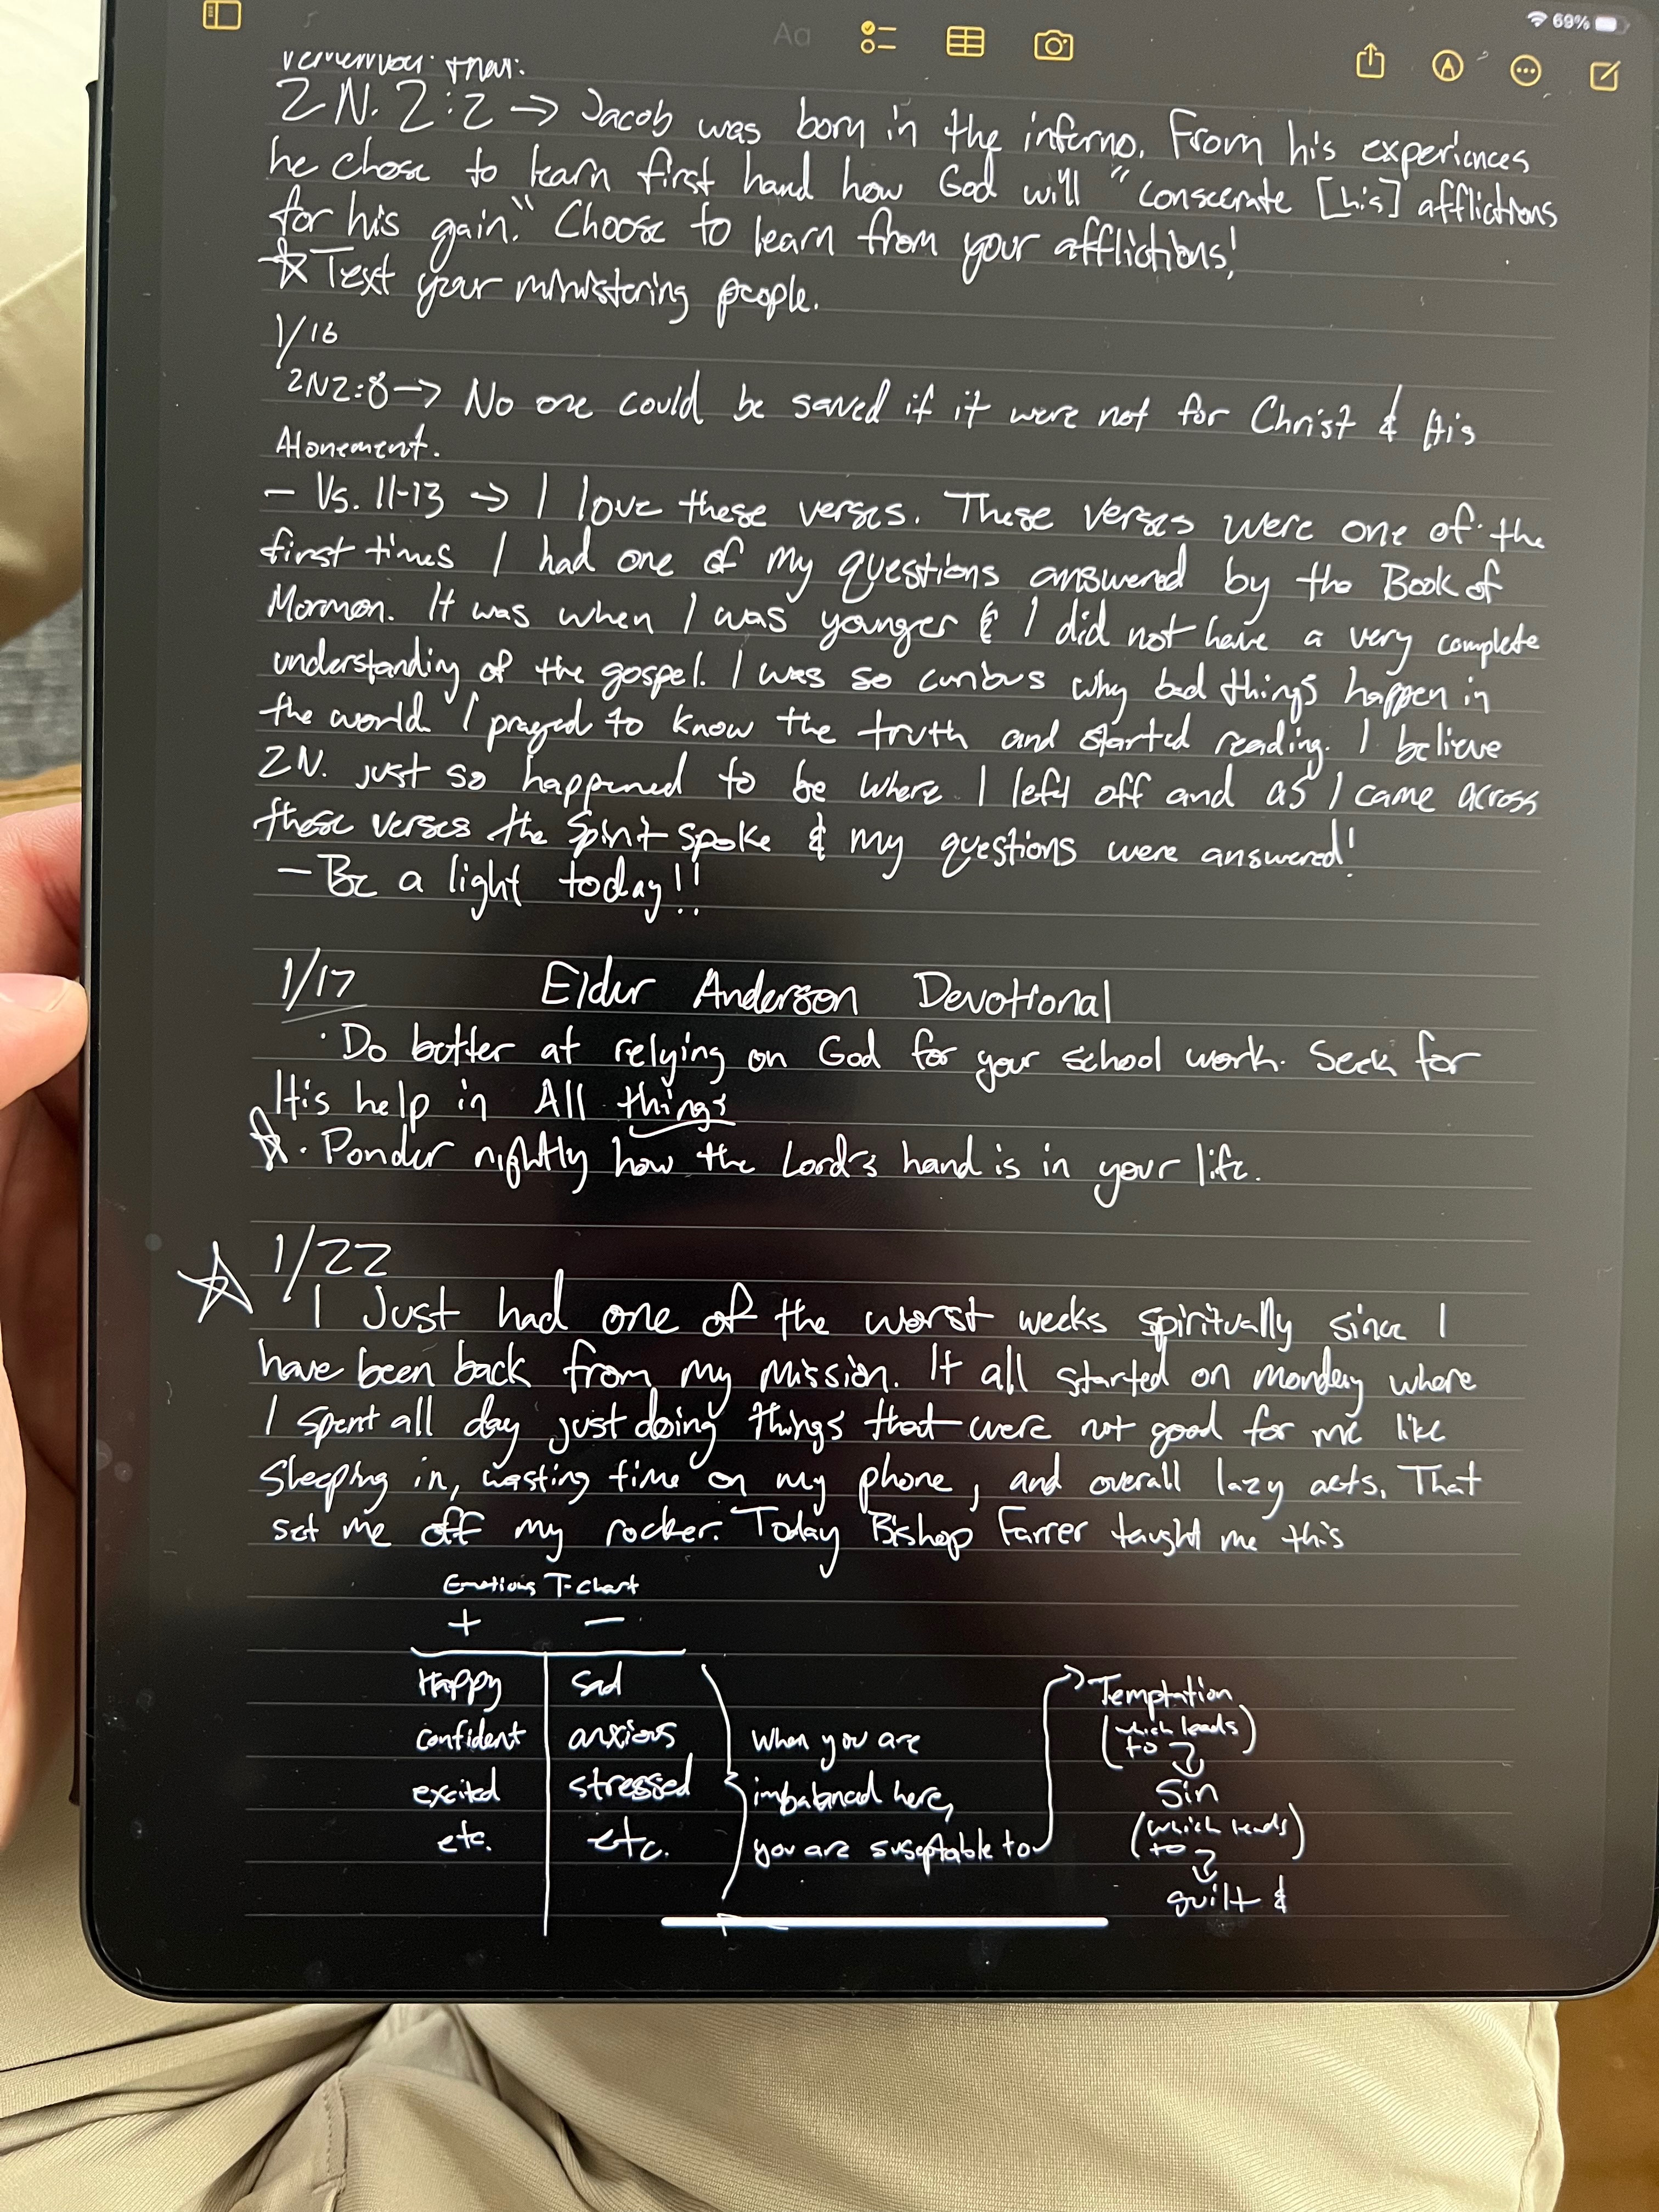 69%
Aa
remember that.
2 N. 2:2 → Jacob was born in the inferno. From his experiences
he chose to learn first hand how God will "consecrate [his] afflictions
for his gain." Choose to learn from your afflictions!
☆ Text your ministering people.
1/16
2N2:8 → No one could be saved if it were not for Christ & His
Atonement.
- Vs. 11-13 → I love these verses. These verses were one of the
first times I had one of my questions answered by the Book of
Mormon. It was when I was younger & I did not have a very complete
understanding of the gospel. I was so curious why bad things happen in
the world. I prayed to know the truth and started reading. I believe
2N. just so happened to be where I left off and as I came across
these verses the Spirit spoke & my questions were answered!
- Be a light today!!
1/17 Elder Anderson Devotional
· Do better at relying on God for your school work. Seek for
His help in All things
☆ · Ponder nightly how the Lord's hand is in your life.
☆ 1/22
I Just had one of the worst weeks spiritually since I
have been back from my mission. It all started on monday where
I spent all day just doing things that were not good for me like
sleeping in, wasting time on my phone, and overall lazy acts. That
set me off my rocker. Today Bishop Farrer taught me this
Emotions T-Chart
+ -
Happy sad
confident anxious
excited stressed
etc. etc.
When you are
imbalanced here,
you are suseptable to
→ Temptation
(which leads
to ↓)
Sin
(which leads
to ↓)
guilt &